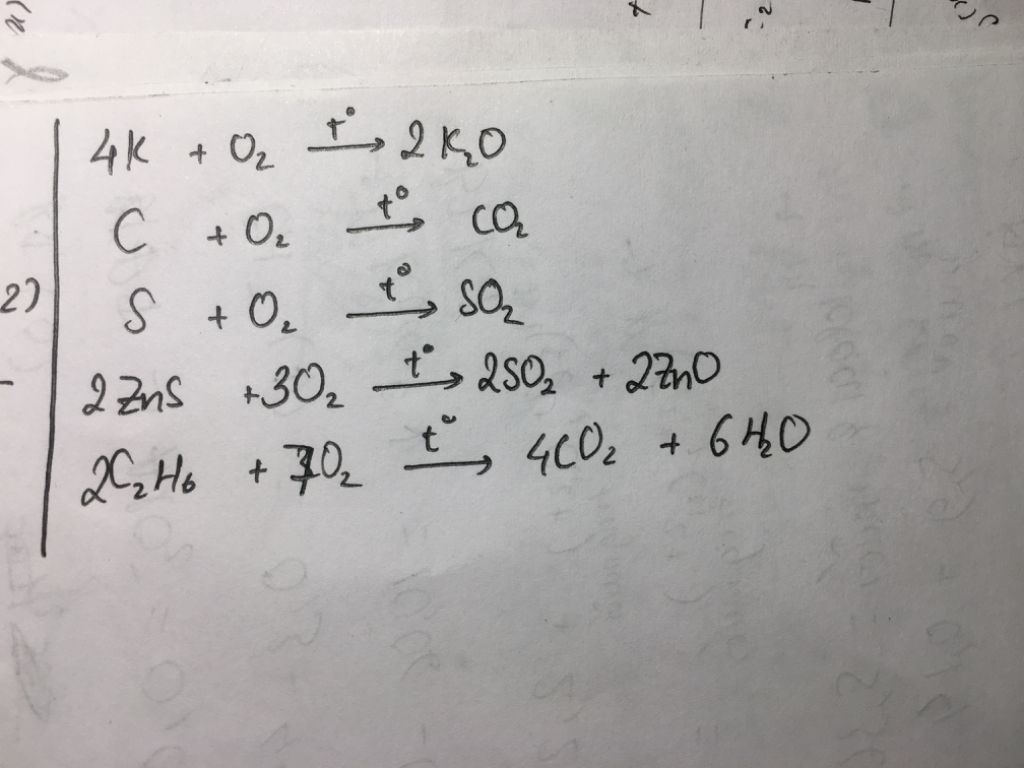 4K + O₂ —t°→ 2K₂O
C + O₂ —t°→ CO₂
2) S + O₂ —t°→ SO₂
2ZnS + 3O₂ —t°→ 2SO₂ + 2ZnO
2C₂H₆ + 7O₂ —t°→ 4CO₂ + 6H₂O